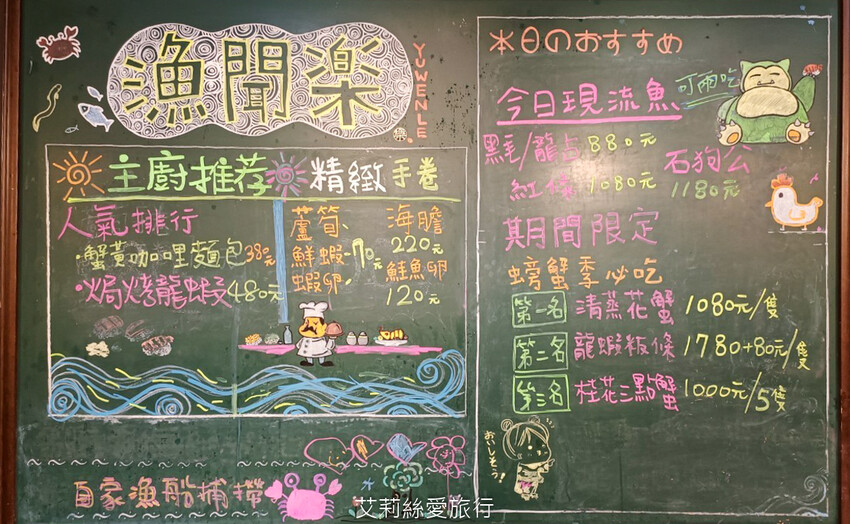 漁聞楽
YUWENLE
主廚推荐 精緻手卷
人氣排行
・蟹黃咖哩麵包380元
・焗烤龍蝦480元
蘆筍、
鮮蝦、
蝦卵、
70元
海膽
220元
鮭魚卵
120元
自家漁船捕撈
本日のおすすめ
今日現流魚 可兩吃
黑毛/龍占 880元
紅條 1080元
石狗公
1180元
期間限定
螃蟹季必吃
第一名 清蒸花蟹 1080元/隻
第二名 龍蝦粄條 1780+80元/隻
第三名 桂花三點蟹 1000元/5隻
おいしそう!
艾莉絲愛旅行